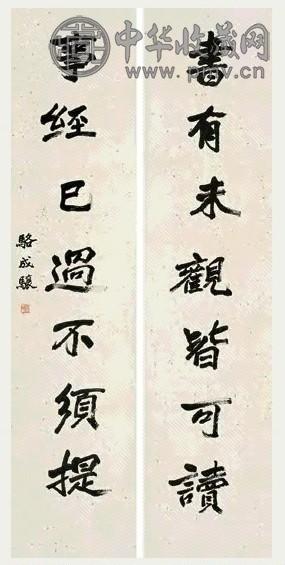 中华收藏网
www.pmv.cn
書有未觀皆可讀
事經已過不須提
駱成驤